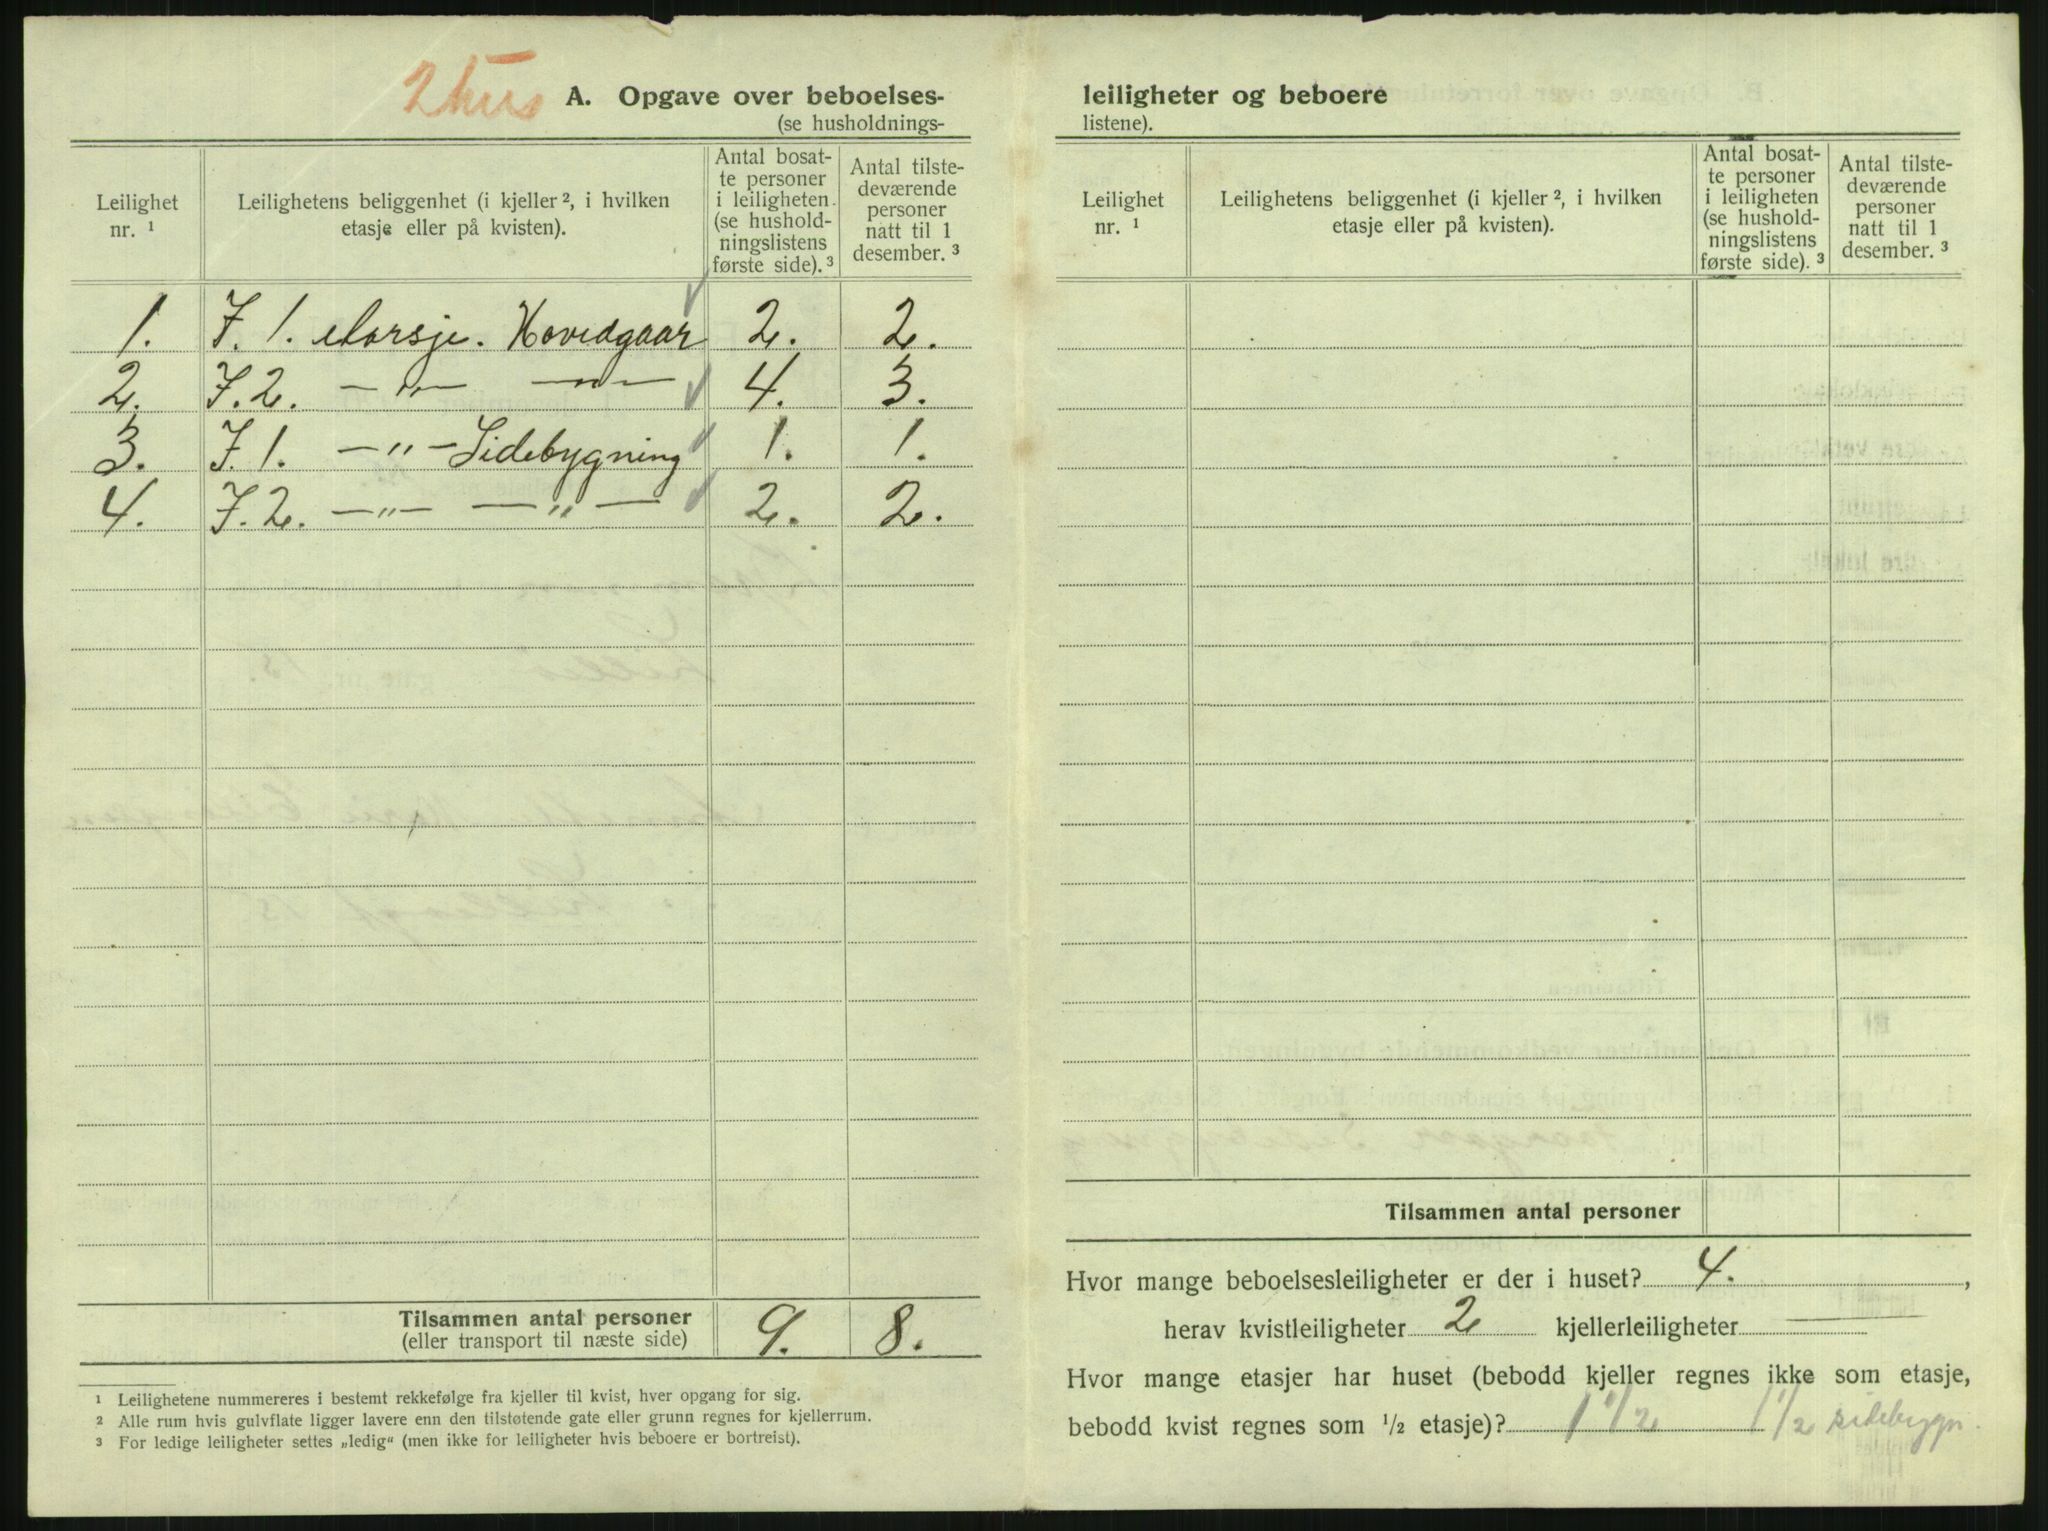 2 hus
A. Opgave over beboelses-
(se husholdnings-
Leilighet nr. ¹
Leilighetens beliggenhet (i kjeller ², i hvilken etasje eller på kvisten).
Antal bosat-
te personer
i leiligheten
(se hushold-
ningslistens
første side). ³
Antal tilste-
deværende
personer
natt til 1
desember. ³
1. I. 1. etarsje. Hovedgaar 2. 2.
2. I. 2. —„— —„— 4. 3.
3. I. 1. —„— Sidebygning 1. 1.
4. I. 2. —„— —„— 2. 2.
Tilsammen antal personer 9. 8.
(eller transport til næste side)
¹ Leilighetene nummereres i bestemt rekkefølge fra kjeller til kvist, hver opgang for sig.
² Alle rum hvis gulvflate ligger lavere enn den tilstøtende gate eller grunn regnes for kjellerrum.
³ For ledige leiligheter settes „ledig“ (men ikke for leiligheter hvis beboere er bortreist).
leiligheter og beboere
listene).
Leilighet nr. ¹
Leilighetens beliggenhet (i kjeller ², i hvilken etasje eller på kvisten).
Antal bosat-
te personer
i leiligheten
(se hushold-
ningslistens
første side). ³
Antal tilste-
deværende
personer
natt til 1
desember. ³
Tilsammen antal personer
Hvor mange beboelsesleiligheter er der i huset? 4.,
herav kvistleiligheter 2 kjellerleiligheter —
Hvor mange etasjer har huset (bebodd kjeller regnes ikke som etasje,
bebodd kvist regnes som ½ etasje)? 1 ½ 1 ½ sidebygn.